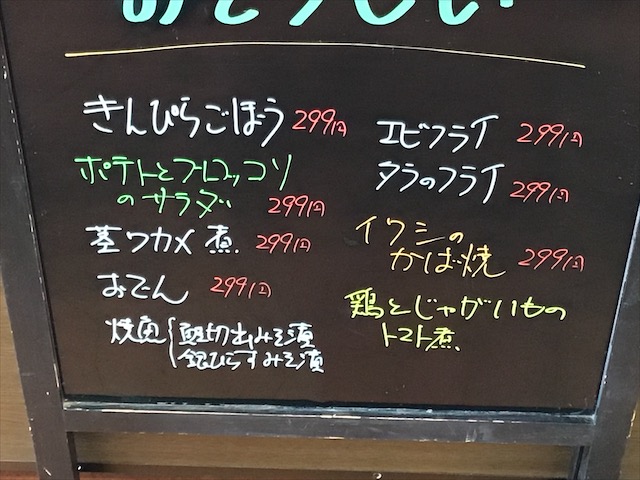 きんぴらごぼう 299円
ポテトとブロッコリ
のサラダ 299円
茎ワカメ煮 299円
おでん 299円
焼魚
鮭切出みそ漬
銀ひらすみそ漬
エビフライ 299円
タラのフライ 299円
イワシの
かば焼 299円
鶏とじゃがいもの
トマト煮